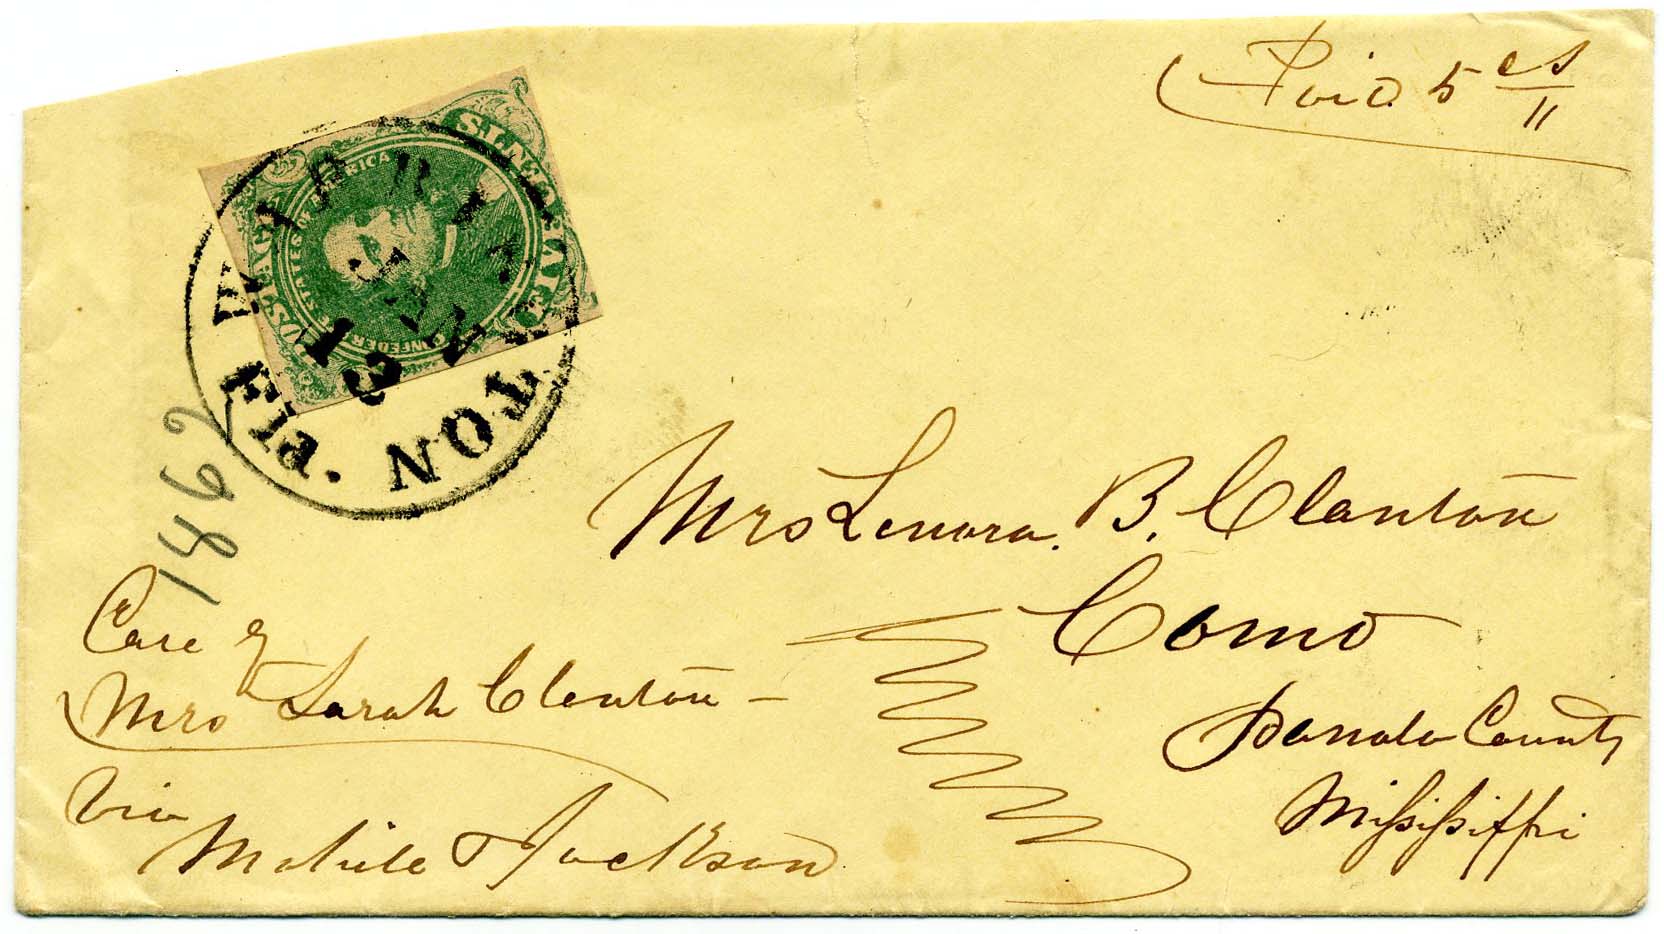 Paid 5 cts
11
NEW WARRINGTON. FL
JAN
13
CONFEDERATE STATES OF AMERICA
POSTAGE
FIVE CENTS
1862
Mrs Lenora. B. Clanton
Como
Panola County
Mississippi
Care of
Mrs Sarah Clanton –
Via
Mobile & Jackson